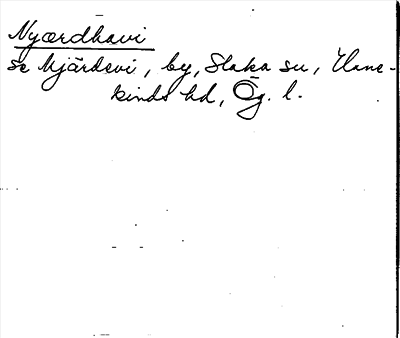 Nyærdhavi
se Mjärdevi, by, Slaka sn, Hane-
kinds hd, Ög. l.